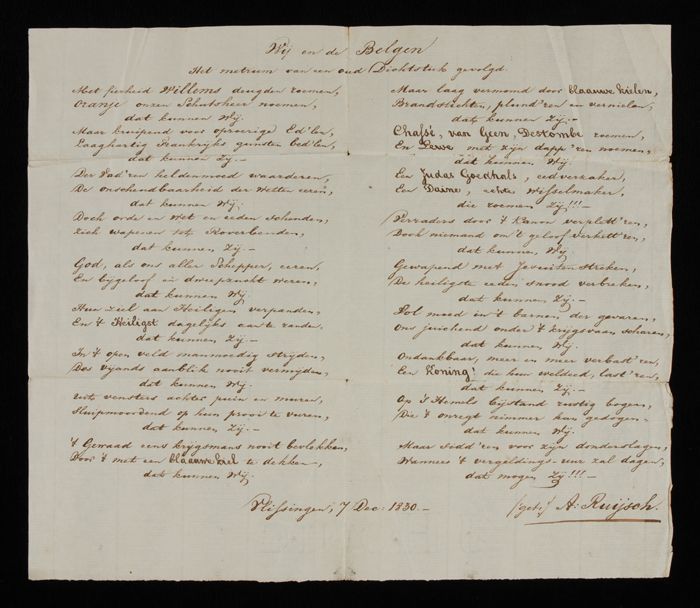 Wij en de Belgen
Het metrum van een oud Dichtstuk gevolgd.
Met fierheid Willems deugden roemen,
Oranje onzen Schutsheer noemen,
dat kunnen Wij.
Maar kruipend voor oproerige Ed'len,
Laaghartig Frankrijks gunsten bed'len,
dat kunnen Zij.–
Der Vad'ren heldenmoed waarderen,
De onschendbaarheid der Wetten eeren,
dat kunnen Wij.
Doch orde en Wet en eeden schonden,
Zich wapenen tot Rooverbenden,
dat kunnen Zij.–
God, als ons aller Schepper, eeren,
En bijgeloof en dweepzucht weren,
dat kunnen Wij.
Hun ziel aan Heiligen verpanden,
En 't Heiligst dagelijks aan te randen
dat kunnen Zij.–
In 't open veld manmoedig strijden,
Des vijands aanblik nooit vermijden,
dat kunnen Wij.
Uit vensters achter puin en muren,
Sluipmoordend op hun prooi te vuren,
dat kunnen Zij.–
't Gewaad eens krijgsmans nooit bevlekken,
Door 't met een blaauwe kiel te dekken,
dat kunnen Wij.
Maar laag vermomd door blaauwe kielen,
Brandstichten, plund'ren en vernielen,
dat kunnen Zij.–
Chassé, van Geen, Destombe roemen,
En met zijn dapp'ren noemen,
dat kunnen Wij.
Een Judas Goedhals, eedverzaker,
Een Daine, echte Wisselmaker,
die roemen Zij!!!–
Verraders door 't Kanon verplett'ren,
Doch niemand om 't geloof verkett'ren,
dat kunnen Wij.
Gewapend met Jesuiten streken,
De heiligste eeden snood verbreken,
dat kunnen Zij.–
Vol moed in 't barnen der gevaren,
Ons juichend onder 't krijgsvaan scharen,
dat kunnen Wij.
Ondankbaar, meer en meer verbast'ren,
Een Koning! die hun weldied, last'ren,
dat kunnen Zij.–
Op 's Hemels bijstand rustig bogen,
Die 't onregt nimmer kan gedogen–
dat kunnen Wij
Maar sidd'ren voor zijn donderslagen,
Wanneer 't vergeldings-uur zal dagen,
dat mogen Zij!!!–
Vlissingen, 7 Dec: 1830.–
(get:) A: Ruijsch.